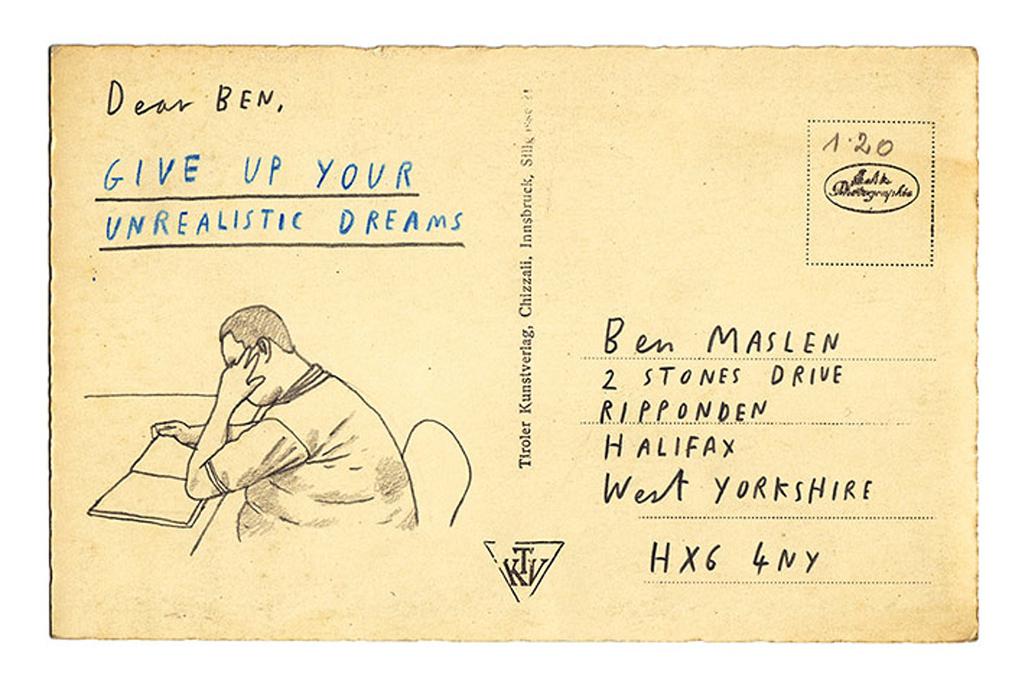 Dear BEN,
GIVE UP YOUR
UNREALISTIC DREAMS
Tiroler Kunstverlag, Chizzali, Innsbruck,
1·20
Ben MASLEN
2 STONES DRIVE
RIPPONDEN
HALIFAX
West YORKSHIRE
HX6 4NY
KTV